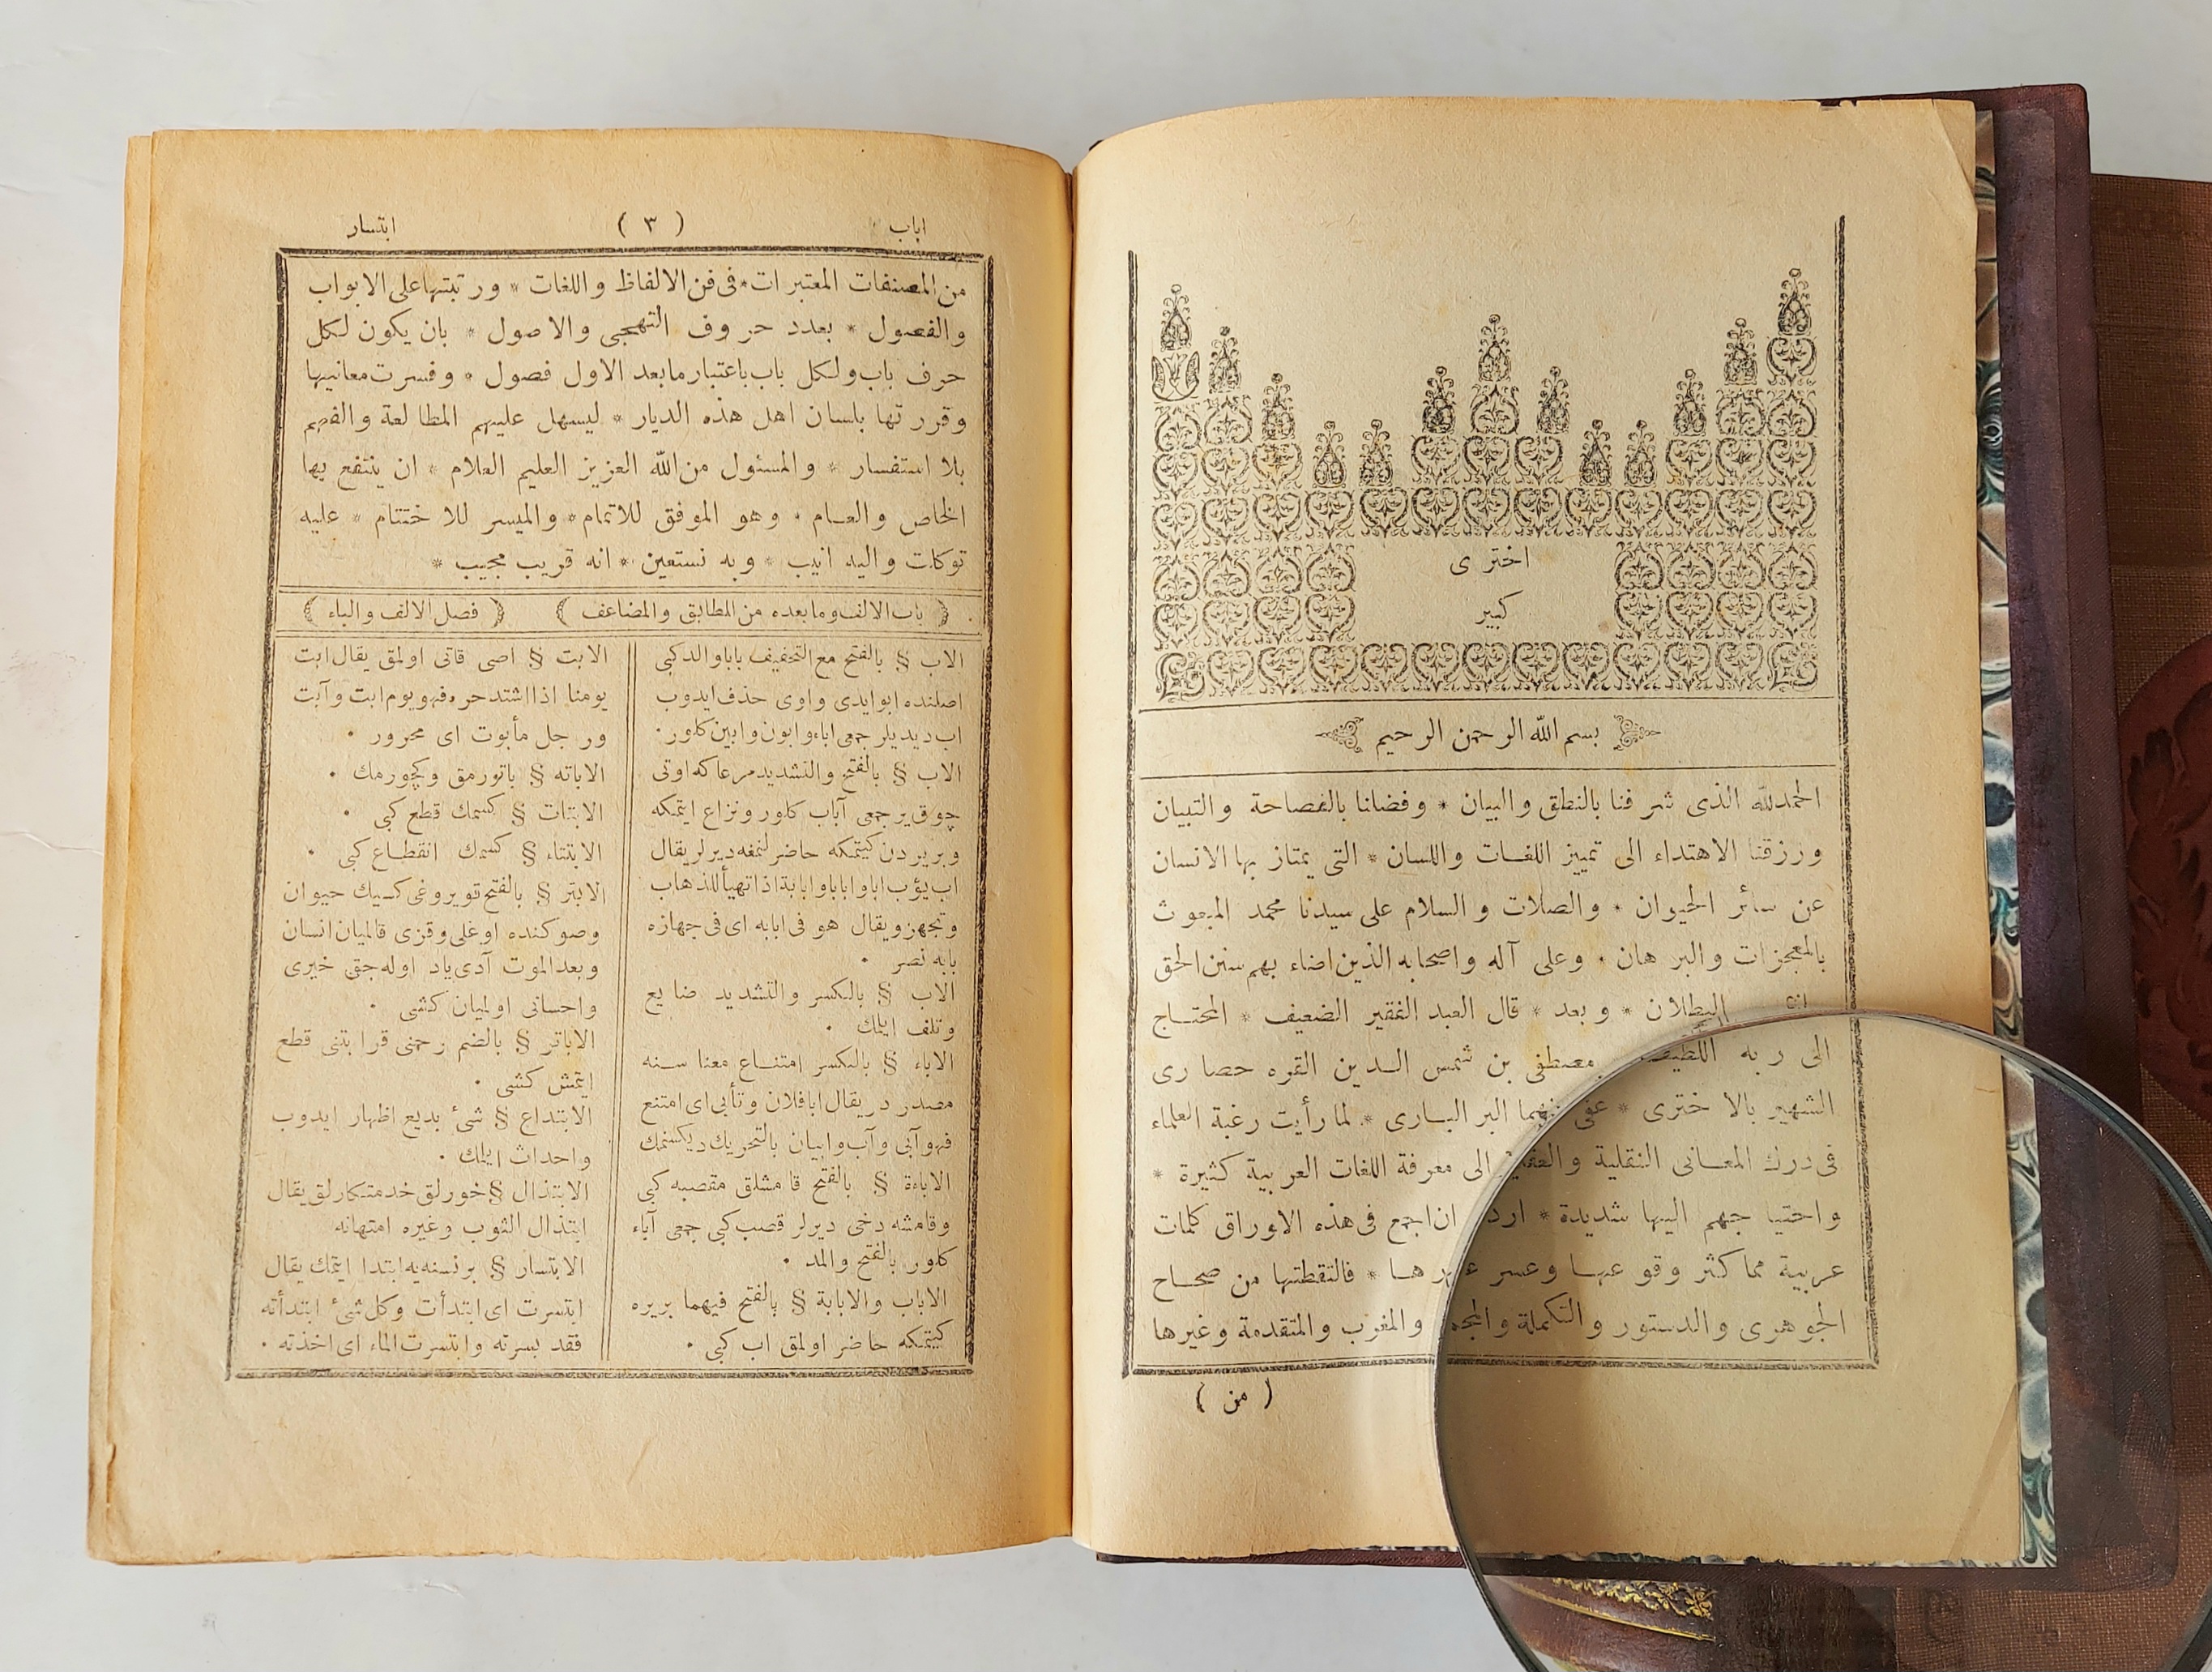 اخترى
كبير
بسم الله الرحمن الرحيم
الحمدلله الذى شرفنا بالنطق والبيان * وفضلنا بالفصاحة والتبيان
ورزقنا الاهتداء الى تمييز اللغات واللسان * التى يمتاز بها الانسان
عن سائر الحيوان * والصلات والسلام على سيدنا محمد المبعوث
بالمعجزات والبرهان * وعلى آله واصحابه الذين اضاء بهم سنن الحق
البطلان * وبعد * قال العبد الفقير الضعيف * المحتاج
الى ربه اللطيف مصطفى بن شمس الدين القره حصارى
الشهير بالاخترى * عفى عنهما البر البارى * لما رأيت رغبة العلماء
فى درك المعانى النقلية والعقلية الى معرفة اللغات العربية كثيرة *
واحتياجهم اليها شديدة * ان اجمع فى هذه الاوراق كلمات
عربية مما كثر وقوعها وعسر * فالتقطتها من صحاح
الجوهرى والدستور والتكملة والمجمل والمغرب والمتقدمة وغيرها
( من )
اباب ( ٣ ) ابتسار
من المصنفات المعتبرات * فى فن الالفاظ واللغات * ورتبتها على الابواب
والفصول * بعدد حروف التهجى والاصول * بان يكون لكل
حرف باب ولكل باب باعتبار مابعد الاول فصول * وفسرت معانيها
وقررتها بلسان اهل هذه الديار * ليسهل عليهم المطالعة والفهم
بلا استفسار * والمسئول من الله العزيز العليم العلام * ان ينتفع بها
الخاص والعام * وهو الموفق للاتمام * والميسر للاختتام * عليه
توكلت واليه انيب * وبه نستعين * انه قريب مجيب *
( باب الالف وما بعده من المطابق والمضاعف ) ( فصل الالف والباء )
الاب § بالفتح مع التخفيف بابا والد كبى
اصلنده ابو ايدى واوى حذف ايدوب
اب ديديلر جمعى اباء وابون وابين كلور.
الاب § بالفتح والتشديد مرعا كه اوتى
چوق ير جمعى آباب كلور ونزاع ايتمكه
وبر يردن كيتمكه حاضرلنمغه ديرلر يقال
اب يؤب ابا وابابا وابابة اذا تهيأ للذهاب
وتجهز ويقال هو فى ابابه اى فى جهازه
بابه نصر .
الاب § بالكسر والتشديد ضايع
وتلف ايلك .
الاباء § بالكسر امتناع معنا سنه
مصدر در يقال ابا فلان وتأبى اى امتنع
فهو آبى وآب وابيان بالتحريك ديكسنمك
الاباءة § بالفتح قامشلق مقصبه كبى
وقامشه دخى ديرلر قصب كبى جمعى آباء
كلور بالفتح والمد .
الاباب والابابة § بالفتح فيهما بريره
كيتمكه حاضر اولمق اب كبى .
الابت § اصى قاتى اولمق يقال ابت
يومنا اذا اشتد حره فهو يوم ابت وآبت
ورجل مأبوت اى محرور .
الاباته § باتورمق وكچورمك .
الابتات § كسمك قطع كبى .
الابتتاء § كسمك انقطاع كبى .
الابتر § بالفتح قويروغى كسيك حيوان
وصوكنده اوغلى وقزى قالميان انسان
وبعد الموت آدى ياد اوله جق خيرى
واحسانى اولميان كشى .
الاباتر § بالضم زحمنى قرابتنى قطع
ايتمش كشى .
الابتداع § شئ بديع اظهار ايدوب
واحداث ايلك .
الابتذال § خورلق خدمتكارلق يقال
ابتذال الثوب وغيره امتهانه
الابتسار § برنسنه يه ابتدا ايتمك يقال
ابتسرت اى ابتدأت وكل شئ ابتدأته
فقد بسرته وابتسرت الماء اى اخذته .